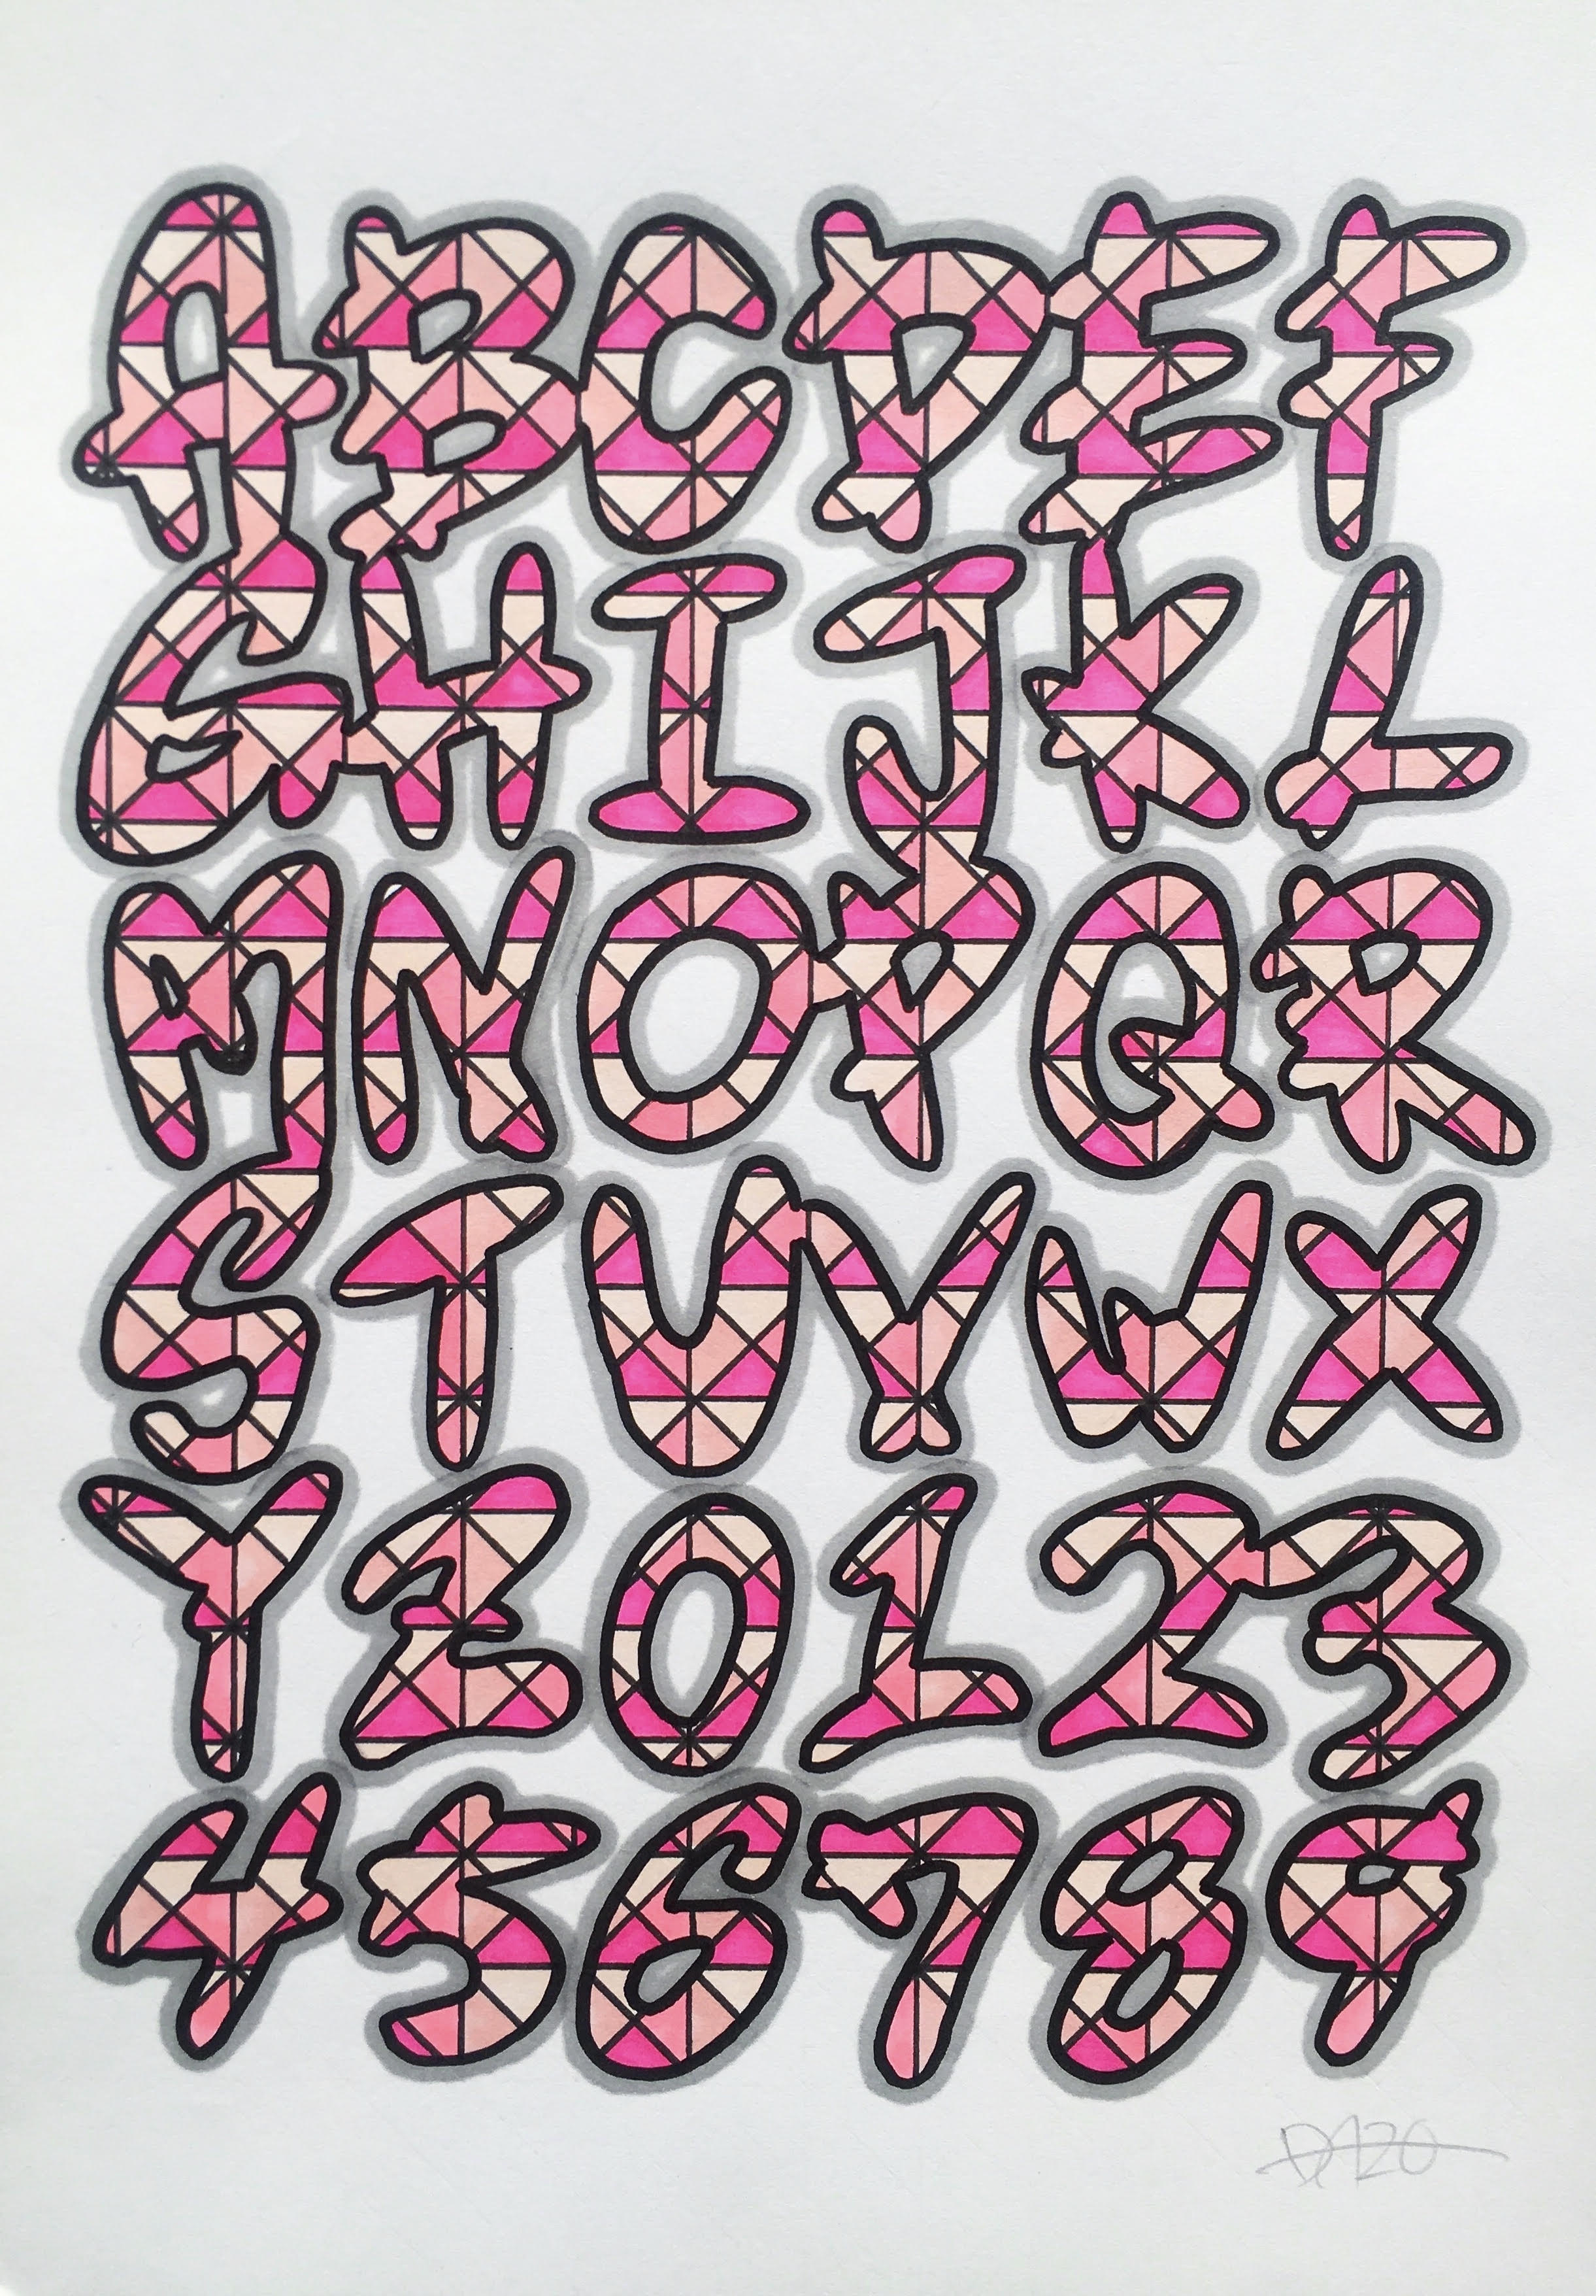 ABCDEF
GHIJKL
MNOPQR
STUVWX
YZ0123
456789